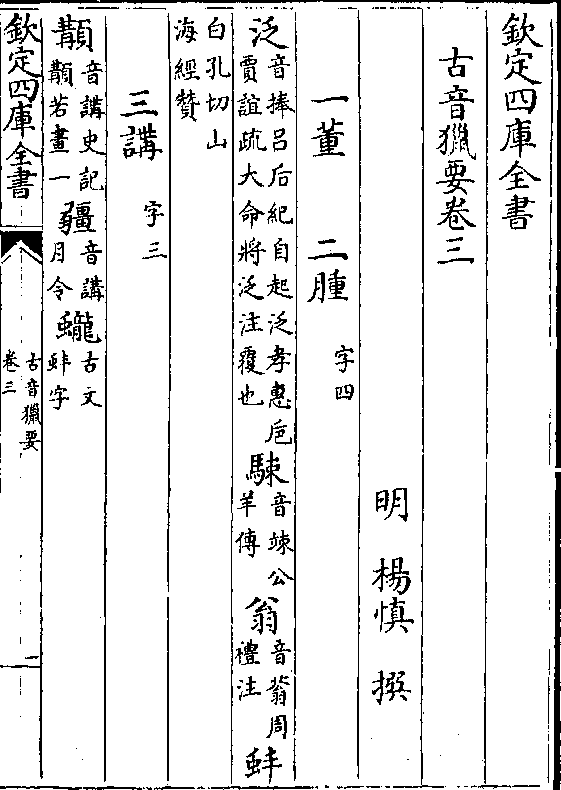 欽定四庫全書
古音獵要卷三
明 楊慎 撰
一董 二腫 字四
泛 音捧吕后紀自起泛孝惠巵
賈誼疏大命將泛注覆也
駷 音竦公
羊傳
翁 音蓊周
禮注
蚌
白孔切山
海經贊
三講 字三
顜 音講史記
顜若畫一
疆 音講
月令
蠬 古文
蚌字
欽定四庫全書
古音獵要
卷三
一